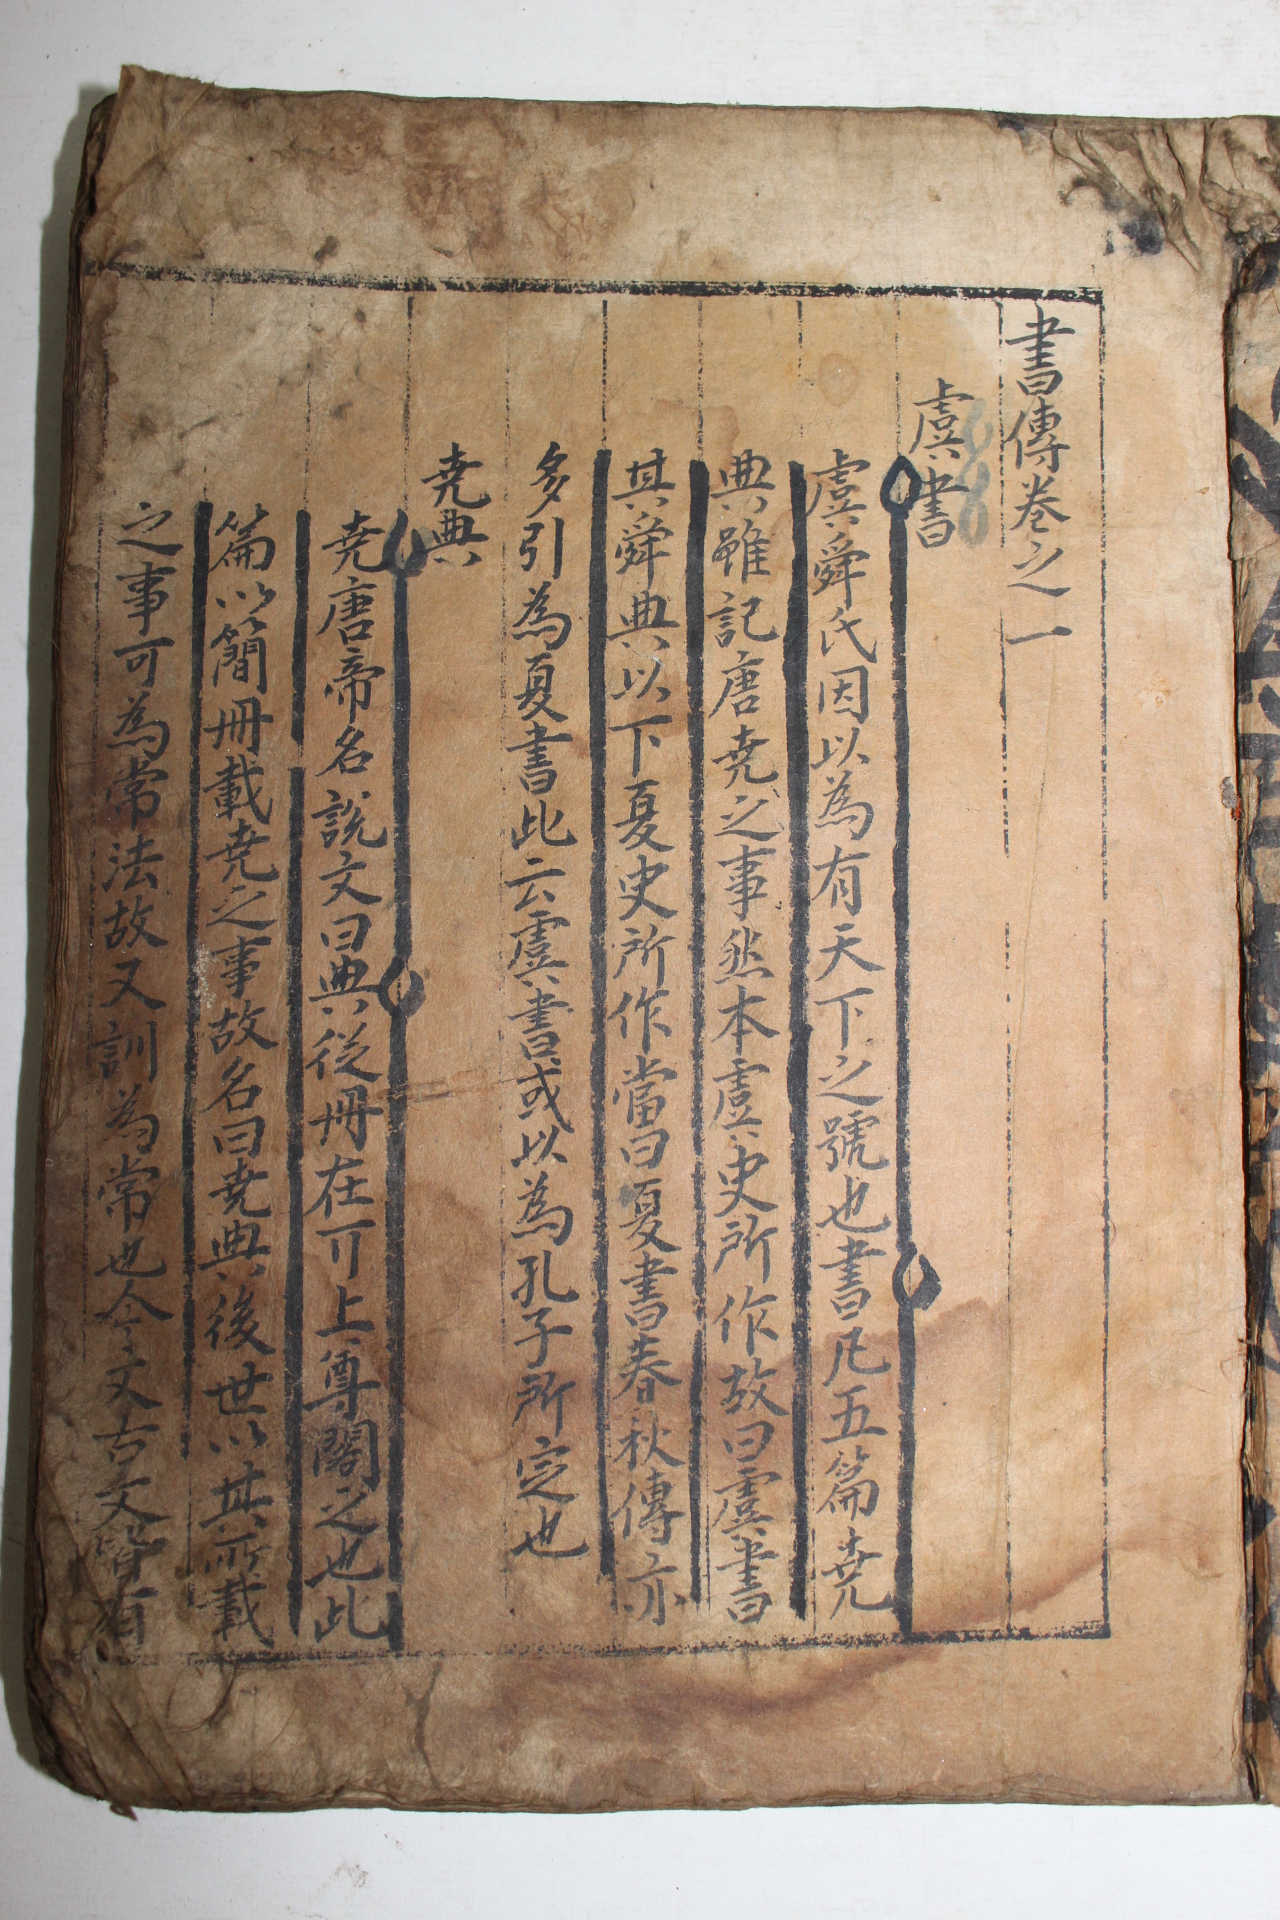 書傳卷之一
虞書
虞舜氏因以為有天下之號也書凡五篇堯
典雖記唐堯之事然本虞史所作故曰虞書
其舜典以下夏史所作當曰夏書春秋傳亦
多引為夏書此云虞書或以為孔子所定也
堯典
堯唐帝名說文曰典從冊在丌上尊閣之也此
篇以簡冊載堯之事故名曰堯典後世以其所載
之事可為常法故又訓為常也今文古文皆有